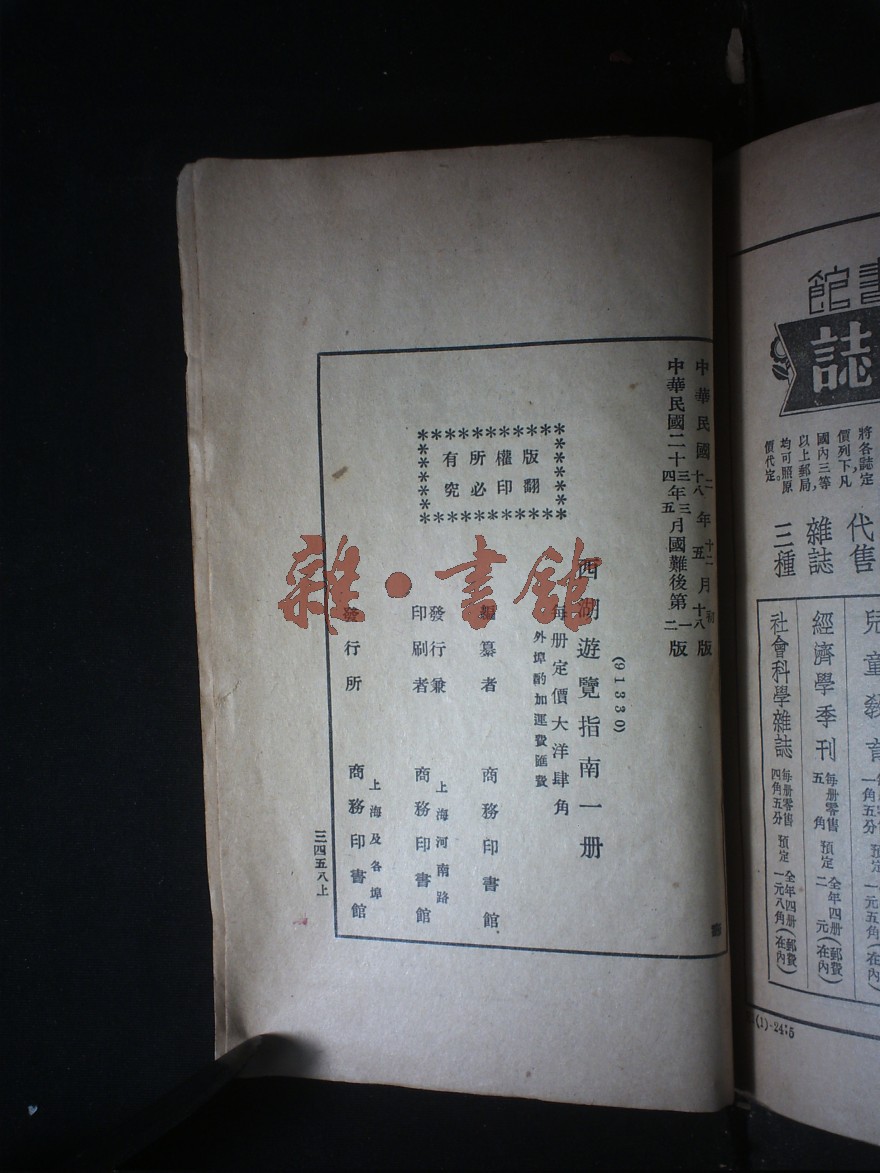 中華民國二年十二月初版
十八 五 十八
中華民國二十三年三月國難後第一版
四 五 二
版權所有
翻印必究
(91330)
西湖遊覽指南一册
每册定價大洋肆角
外埠酌加運費匯費
編纂者 商務印書館
發行兼印刷者 上海河南路 商務印書館
發行所 上海及各埠 商務印書館
三四五八上
雜·書館
書館
誌
將各誌定
價列下凡
國內三等
以上郵局
均可照原
價代定。
代售
雜誌
三種
兒童教育
一角五分 預定 一元五角(在內
經濟學季刊 每册零售五角 預定 全年四册二元(郵費在內)
社會科學雜誌 每册零售四角五分 預定 全年四册一元八角(郵費在內)
(1)-24:5